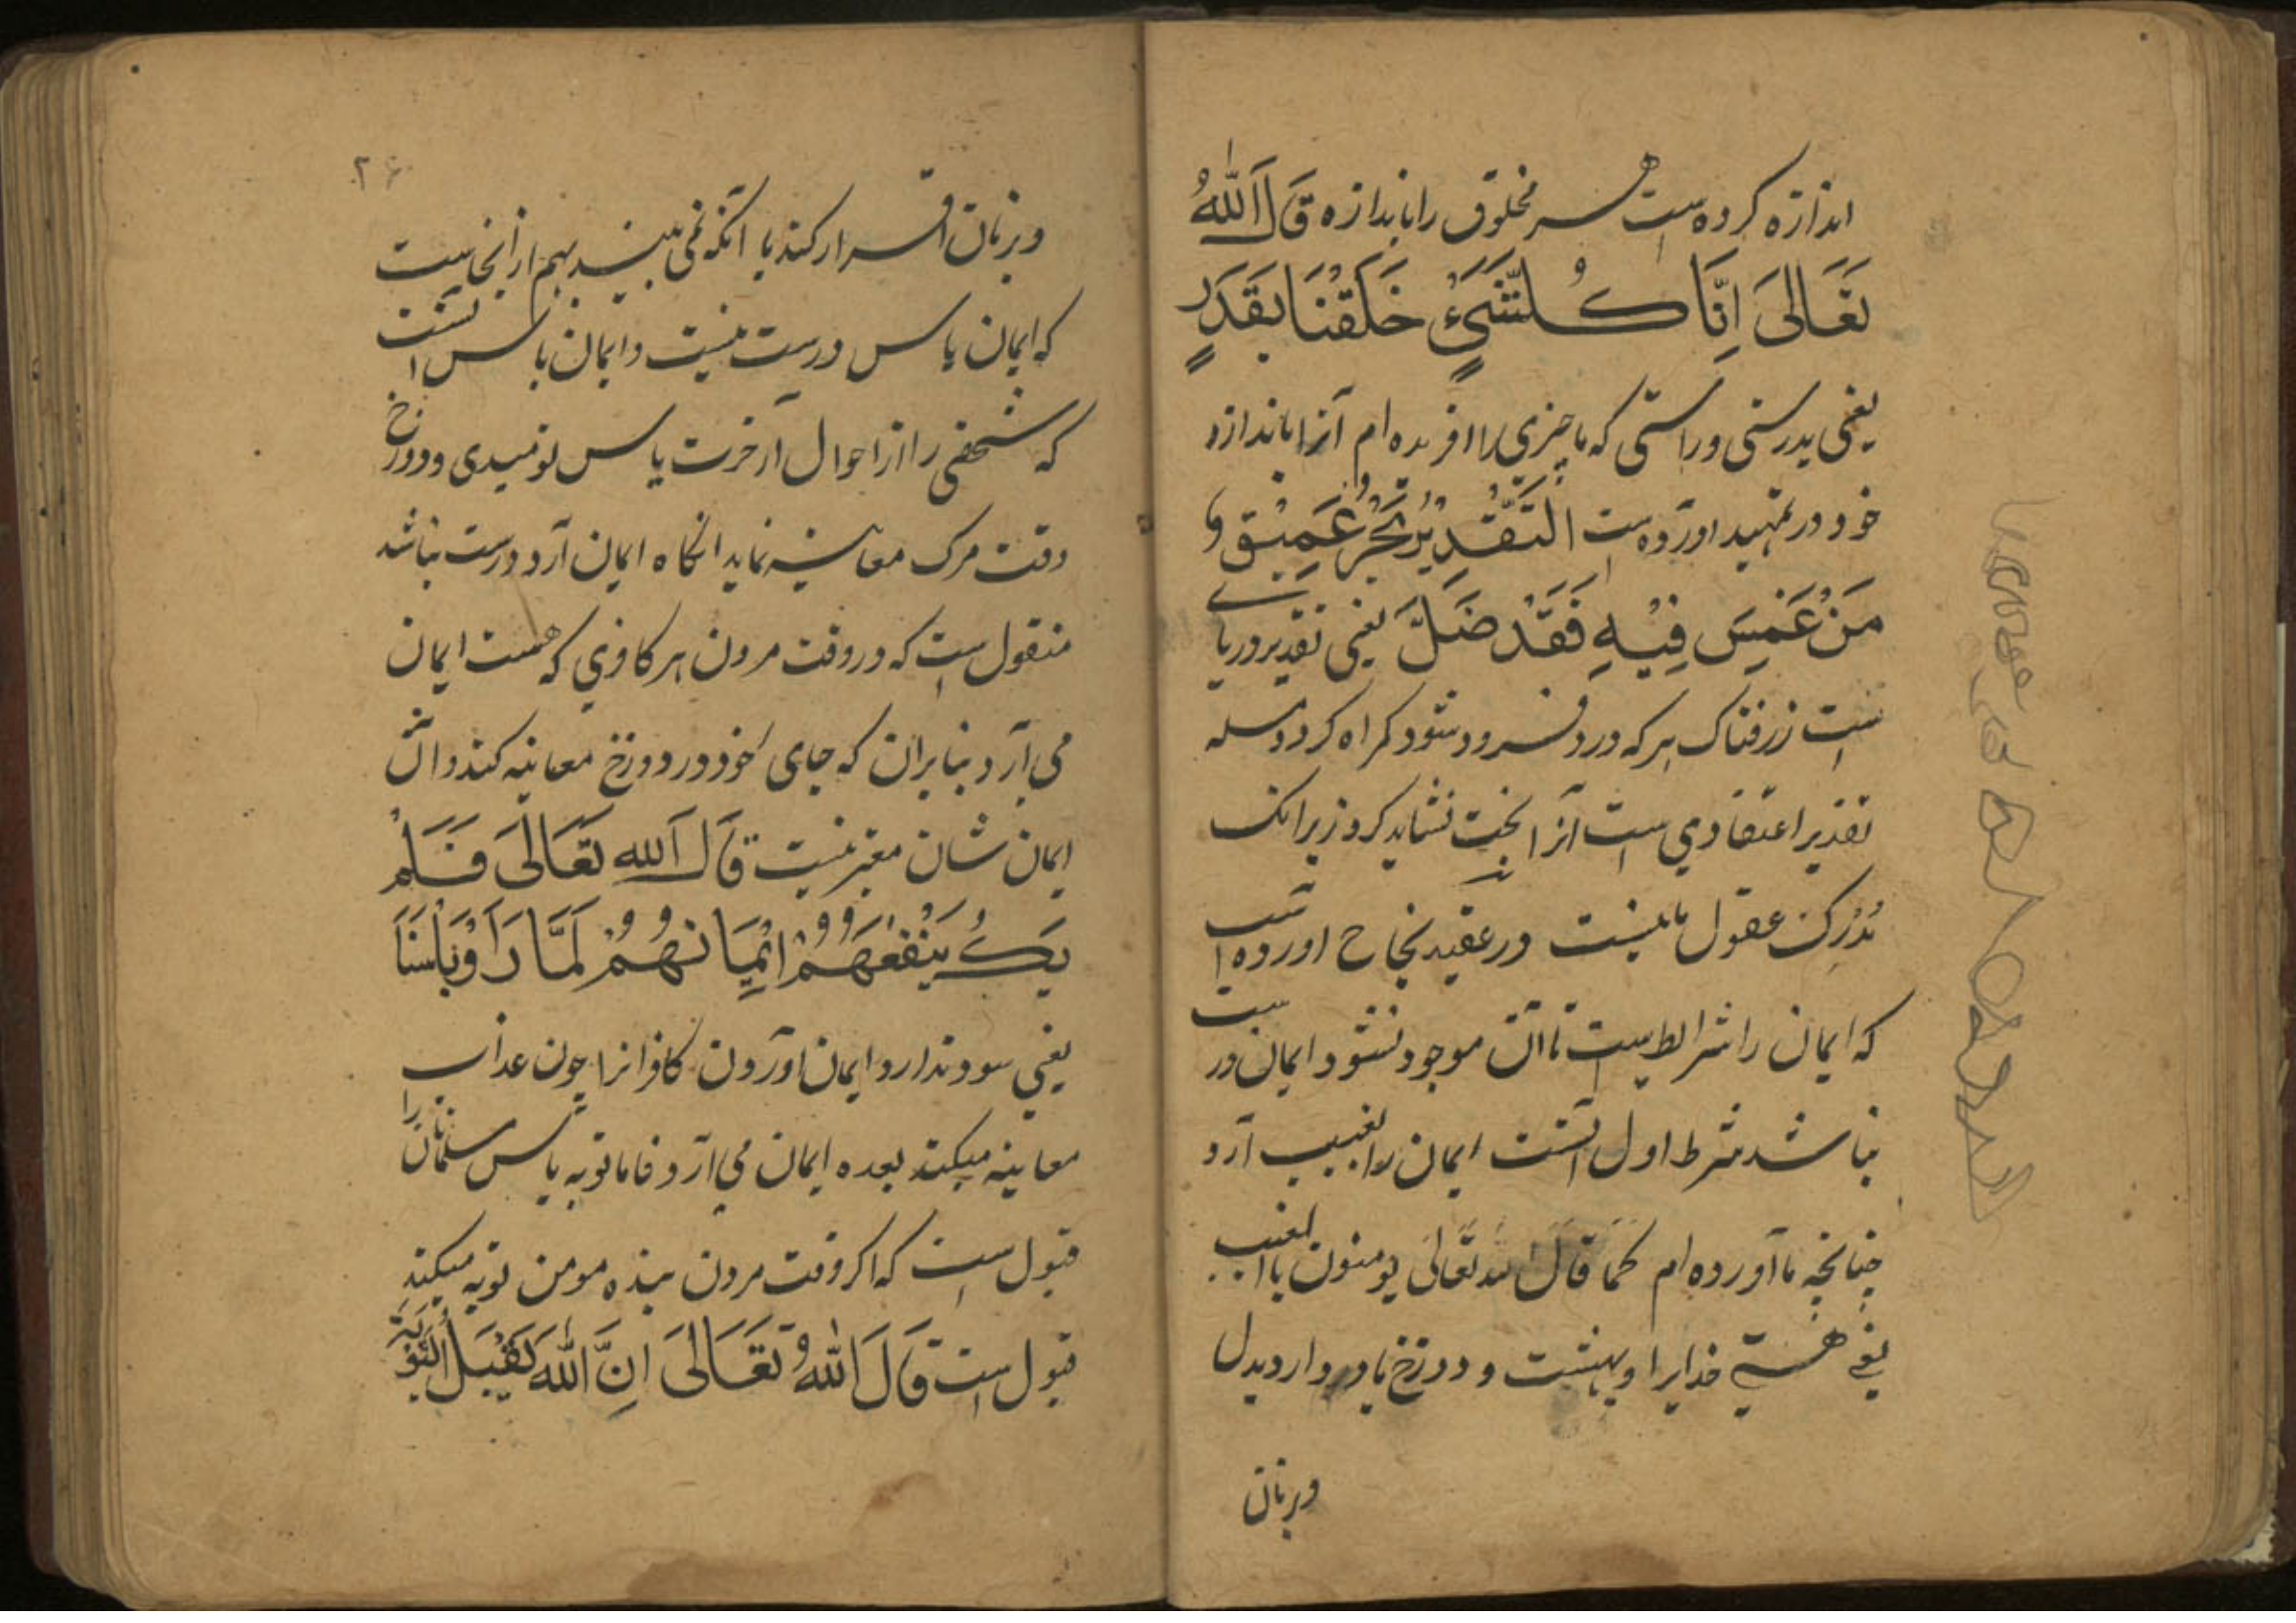 اندازه کرده است هر مخلوق را باندازه قَالَ اللّٰهُ
تَعَالیٰ اِنَّا كُلَّ شَيْءٍ خَلَقْنَا بِقَدَرٍ
یعنی بدرستی و راستی که ما چیزی را افریده ام آنرا باندازه
خود در تمهید آورده است اَلتَّقْدِيْرُ بَحْرٌ عَمِيْقٌ وَ
مَنْ غَمِسَ فِيْهِ فَقَدْ ضَلَّ یعنی تقدیر دریای
است ژرفناک هر که درو فرود شود کمراه کردد مسله
تقدیر اعتقادی است آنرا بحث نشاید کرد زیرانک
مُدْرِک عقول ما نیست در عقیده نجاح اورده است
که ایمان را شرایط است تا آن موجود نشود ایمان درست
نباشد شرط اول آنست ایمان را بغیب آرد
چنانچه ما آورده ام کَمَا قَالَ الله تَعَالیٰ یومنون باالغیب
یعنی هستی خدایرا و بهشت و دوزخ باور دارد بدل
وبزبان
۲۶
وبزبان اقرار کند با آنکه نمی بیند بهم از آنجاست
که ایمان یاس درست نیست و ایمان یاس آنست
که شخصی را از احوال آخرت یاس نومیدی و دوزخ
وقت مرک معاینه نماید انکاه ایمان آرد درست نباشد
منقول است که در وقت مردن هر کافری که هست ایمان
می آرد بنابران که جای خود در دوزخ معاینه کند و آن
ایمان شان معتبر نیست قَالَ اللّٰه تَعَالیٰ فَلَمْ
يَكُ يَنْفَعُهُمْ اِيْمَانُهُمْ لَمَّا رَاَوْ بَاْسَنَا
یعنی سود ندارد ایمان آوردن کافرانرا چون عذاب
معاینه میکند بعده ایمان می آرد فاما توبه یاس مسلمانان را
قبول است که اکر وقت مردن بنده مومن توبه میکند
قبول است قَالَ اللّٰهُ تَعَالیٰ اِنَّ اللّٰهَ يَقْبَلُ التَّوْبَةَ